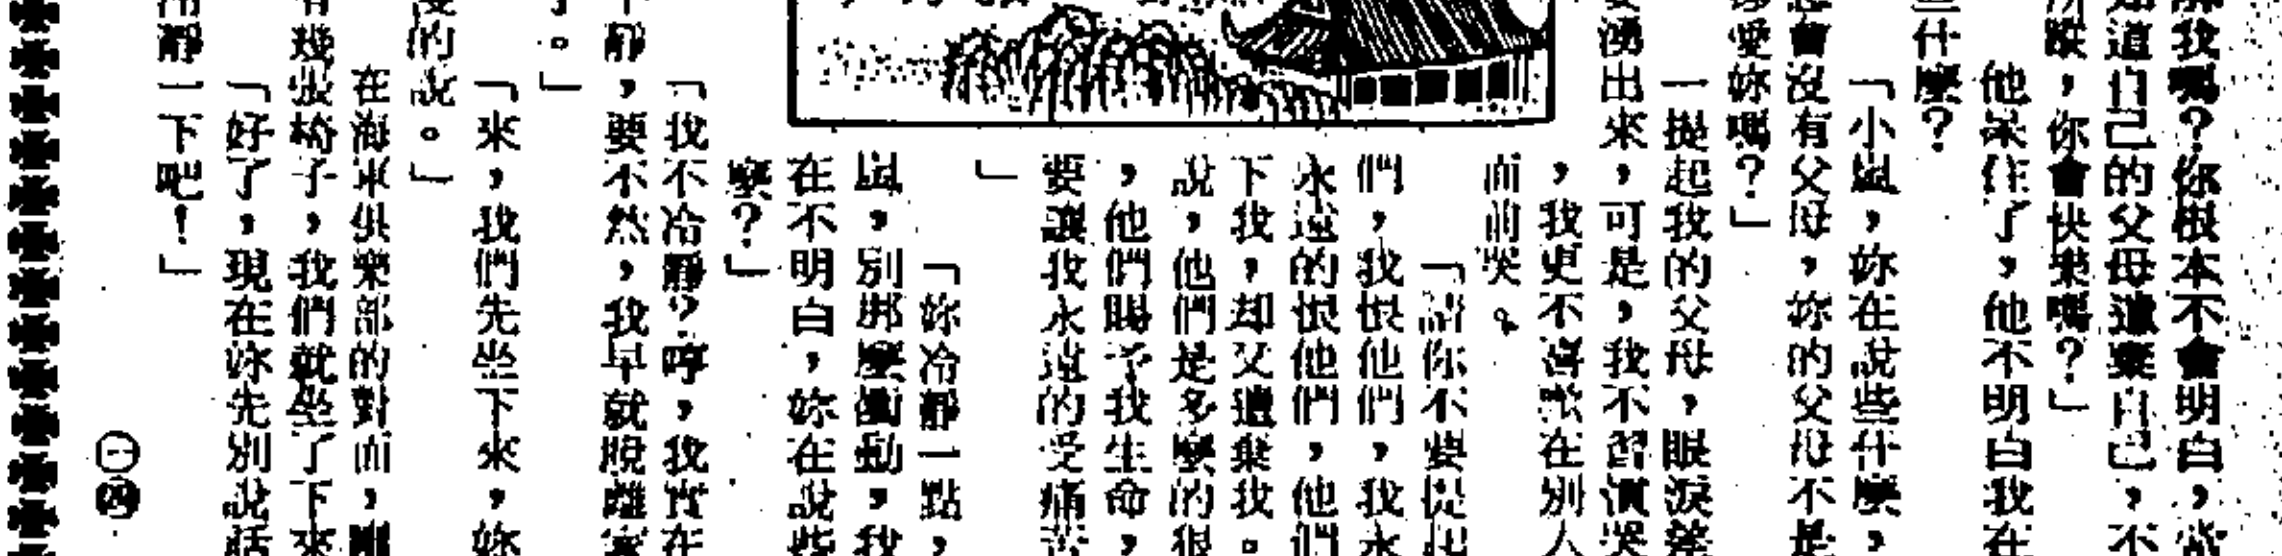 我嗎?你根本不會明白,當
知道自己的父母遺棄自己,不
,你會快樂嗎?」
他呆住了,他不明白我在
些什麼?
「小嵐,妳在說些什麼,
會沒有父母,妳的父母不是
愛妳嗎?」
一提起我的父母,眼淚差
湧出來,可是,我不習慣哭
,我更不喜歡在別人
面前哭。
「請你不要提起
們,我恨他們,我永
永遠的恨他們,他們
下我,却又遺棄我。
說,他們是多麼的狠
,他們賜予我生命,
要讓我永遠的受痛苦
」
「妳冷靜一點,
嵐,別那麼衝動,我
在不明白,妳在說些
麼?」
「我不冷靜?哼,我實在
靜,要不然,我早就脫離家
。」
「來,我們先坐下來,妳
的說。」
在海軍俱樂部的對面,剛
有幾張椅子,我們就坐了下來
「好了,現在妳先別說話
冷靜一下吧!」
㊀㊃